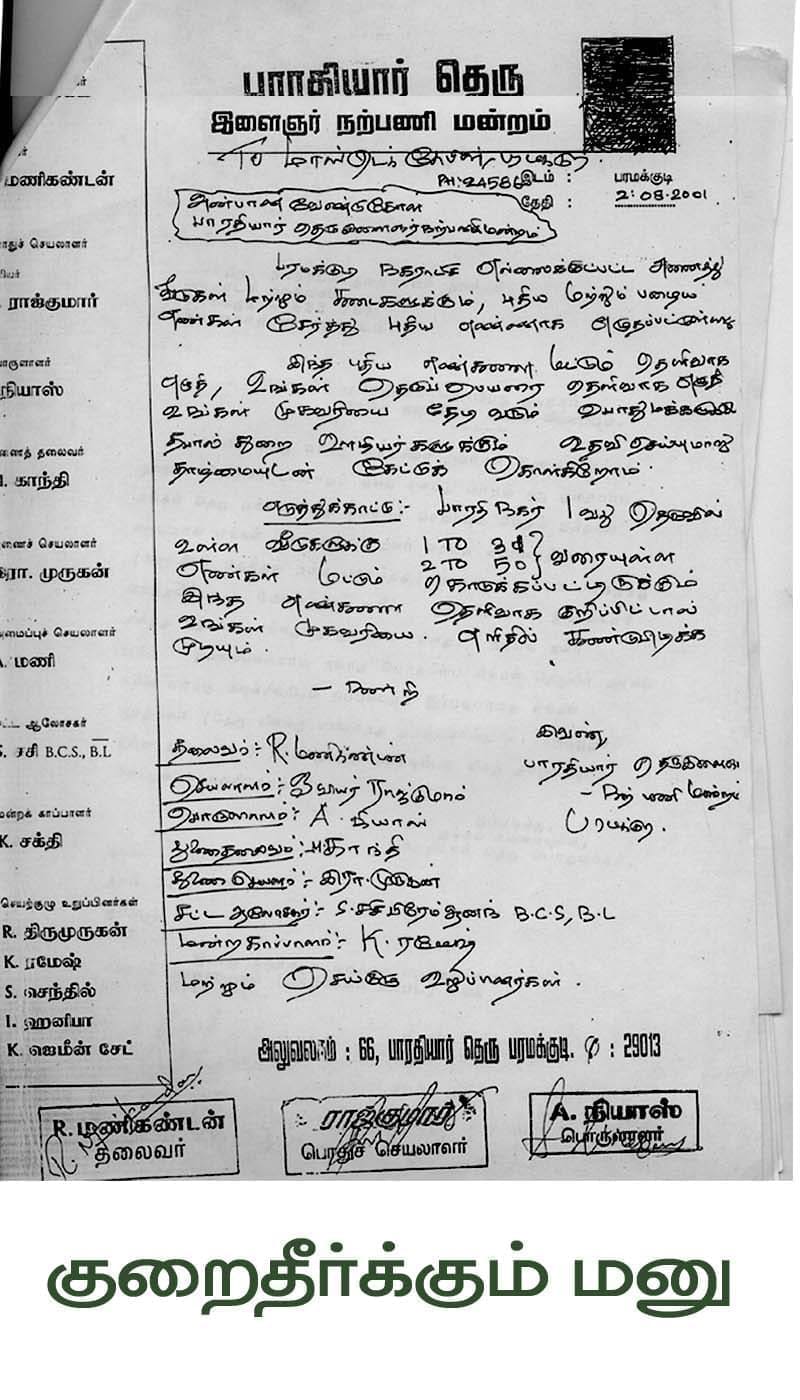 பாரதியார் தெரு
இளைஞர் நற்பணி மன்றம்
To மாஸ்டெக் கேபிள்,
PH: 24586 இடம் : பரமக்குடி
தேதி : 2:08.2001
அன்பான வேண்டுகோள்
பாரதியார் தெரு இளைஞர் நற்பணி மன்றம்
மணிகண்டன்
ராஜ்குமார்
நியாஸ்
காந்தி
முருகன்
மணி
சசி B.C.S., B.L
K. சக்தி
R. திருமுருகன்
K. ரமேஷ்
S. செந்தில்
I. ஹனிபா
K. ஜெமீன் சேட்
பரமக்குடி நகராட்சி எல்லைக்குட்பட்ட அனைத்து
வீடுகள் மற்றும் கடைகளுக்கும், புதிய மற்றும் பழைய
எண்கள் சேர்த்து புதிய எண்ணாக எழுதப்பட்டுள்ளது
இந்த புதிய எண்களை மட்டும் தெளிவாக
எழுதி, உங்கள் தெருப் பெயரை தெளிவாக எழுதி
உங்கள் முகவரியை தேடி வரும் பொதுமக்களுக்கு
தபால் துறை ஊழியர்களுக்கும் உதவி செய்யுமாறு
தாழ்மையுடன் கேட்டுக் கொள்கிறோம்.
எடுத்துக்காட்டு:- பாரதி நகர் 1 வது தெருவில்
உள்ள வீடுகளுக்கு 1 TO
எண்கள் மட்டும் 2 TO 50 } வரையுள்ள கொடுக்கப்பட்டிருக்கும்
இந்த எண்களை தெளிவாக குறிப்பிட்டால்
உங்கள் முகவரியை எளிதில் கண்டுபிடிக்க
முடியும்.
- நன்றி
இவண்,
பாரதியார் தெரு இளைஞர்
- நற்பணி மன்றம்
பரமக்குடி.
தலைவர்:- R. மணிகண்டன்
செயலாளர்:- ராஜ்குமார்
பொருளாளர்:- A. நியாஸ்
துணைதலைவர்:- காந்தி
துணை செயலர்:- இரா. முருகன்
சட்ட ஆலோசகர்:- S. சசி பிரேம் ஆனந் B.C.S, B.L
மன்ற காப்பாளர்:- K. ரமேஷ்
மற்றும் செயற்குழு உறுப்பினர்கள்.
அலுவலகம் : 66, பாரதியார் தெரு பரமக்குடி. ✆ : 29013
R. மணிகண்டன்
தலைவர்
ராஜ்குமார்
பொதுச் செயலாளர்
A. நியாஸ்
பொருளாளர்
குறைதீர்க்கும் மனு